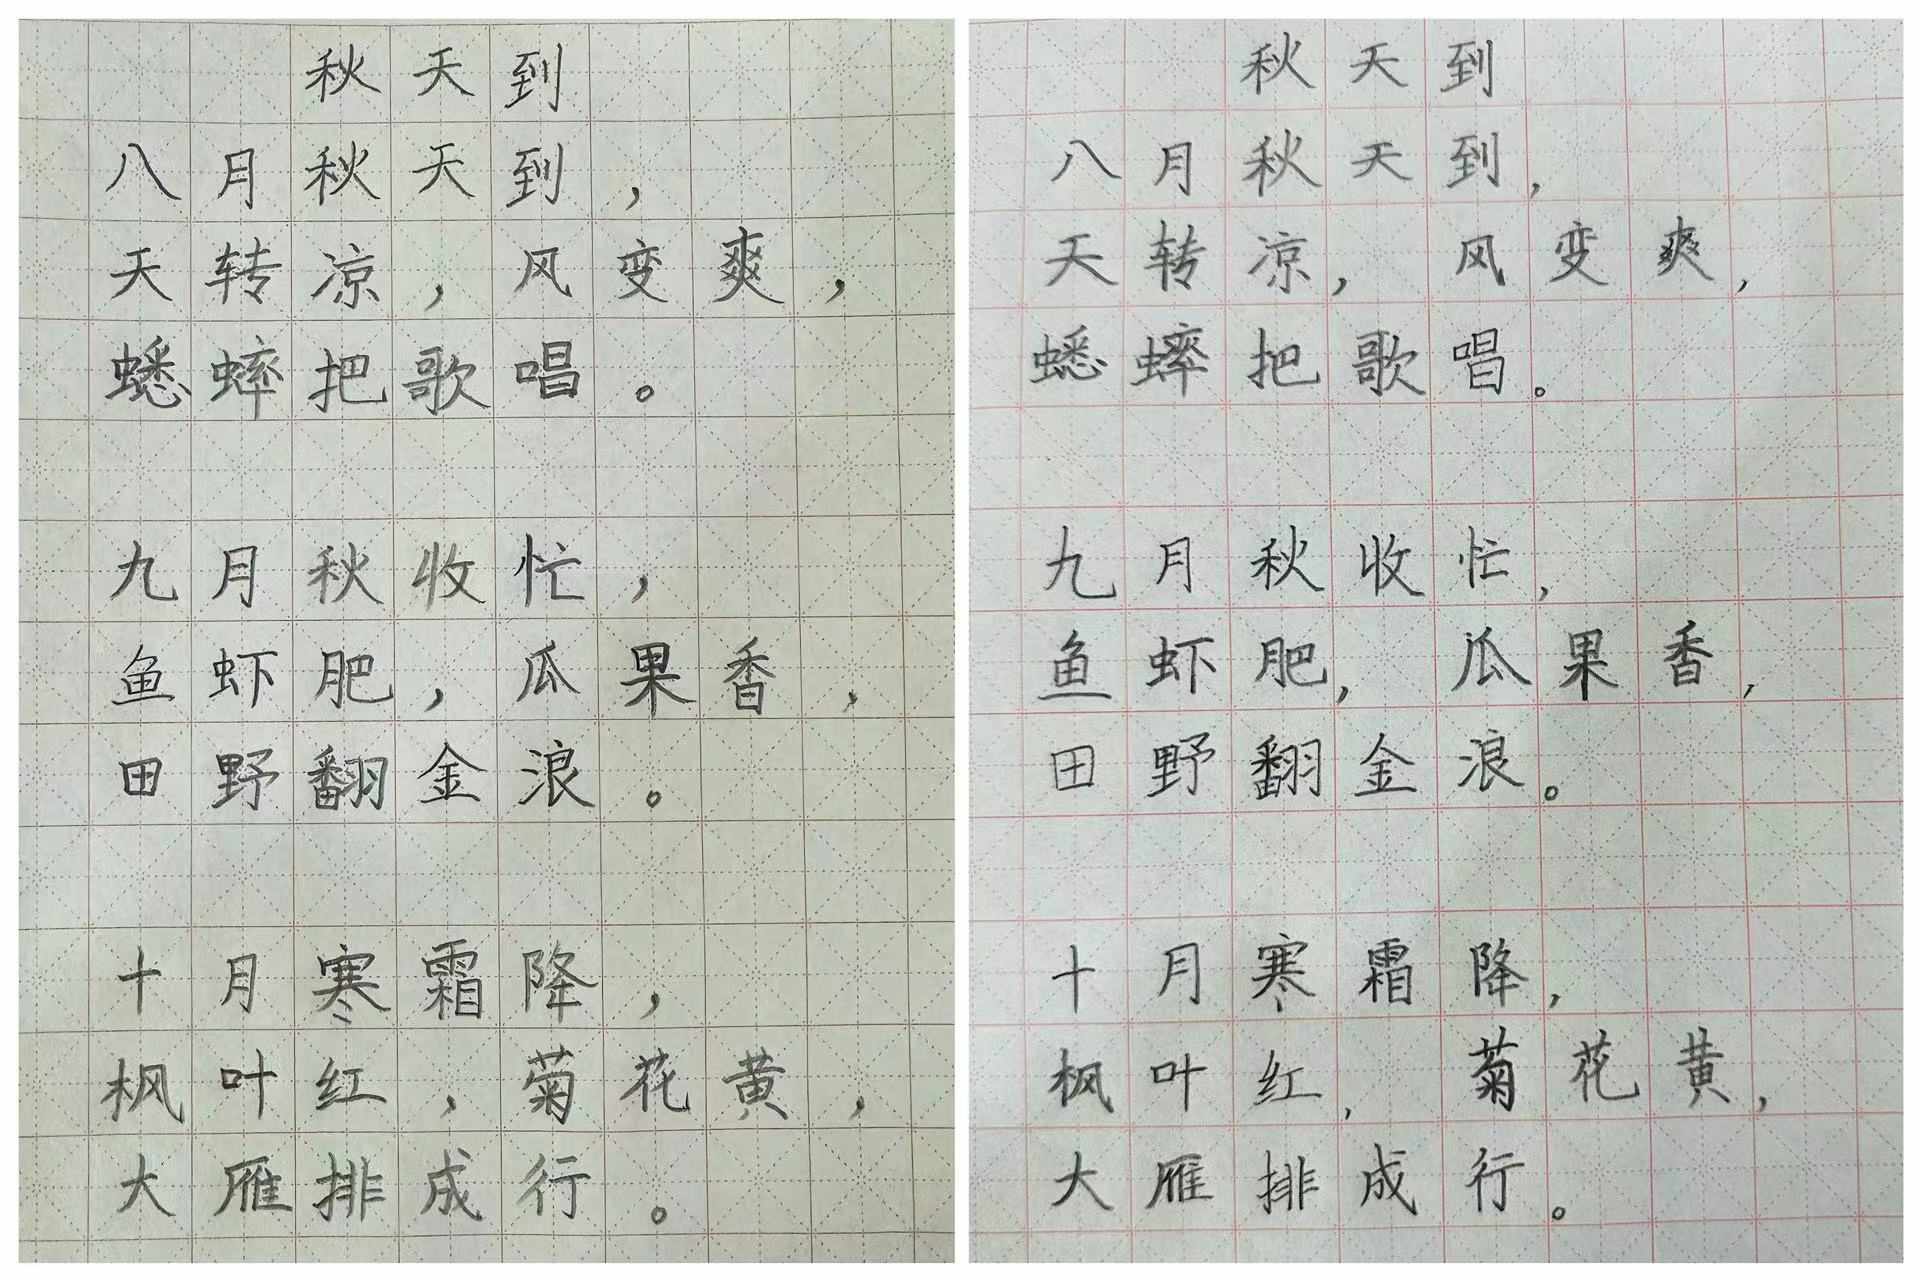 秋天到
八月秋天到，
天转凉，风变爽，
蟋蟀把歌唱。
九月秋收忙，
鱼虾肥，瓜果香，
田野翻金浪。
十月寒霜降，
枫叶红，菊花黄，
大雁排成行。
秋天到
八月秋天到，
天转凉，风变爽，
蟋蟀把歌唱。
九月秋收忙，
鱼虾肥，瓜果香，
田野翻金浪。
十月寒霜降，
枫叶红，菊花黄，
大雁排成行。